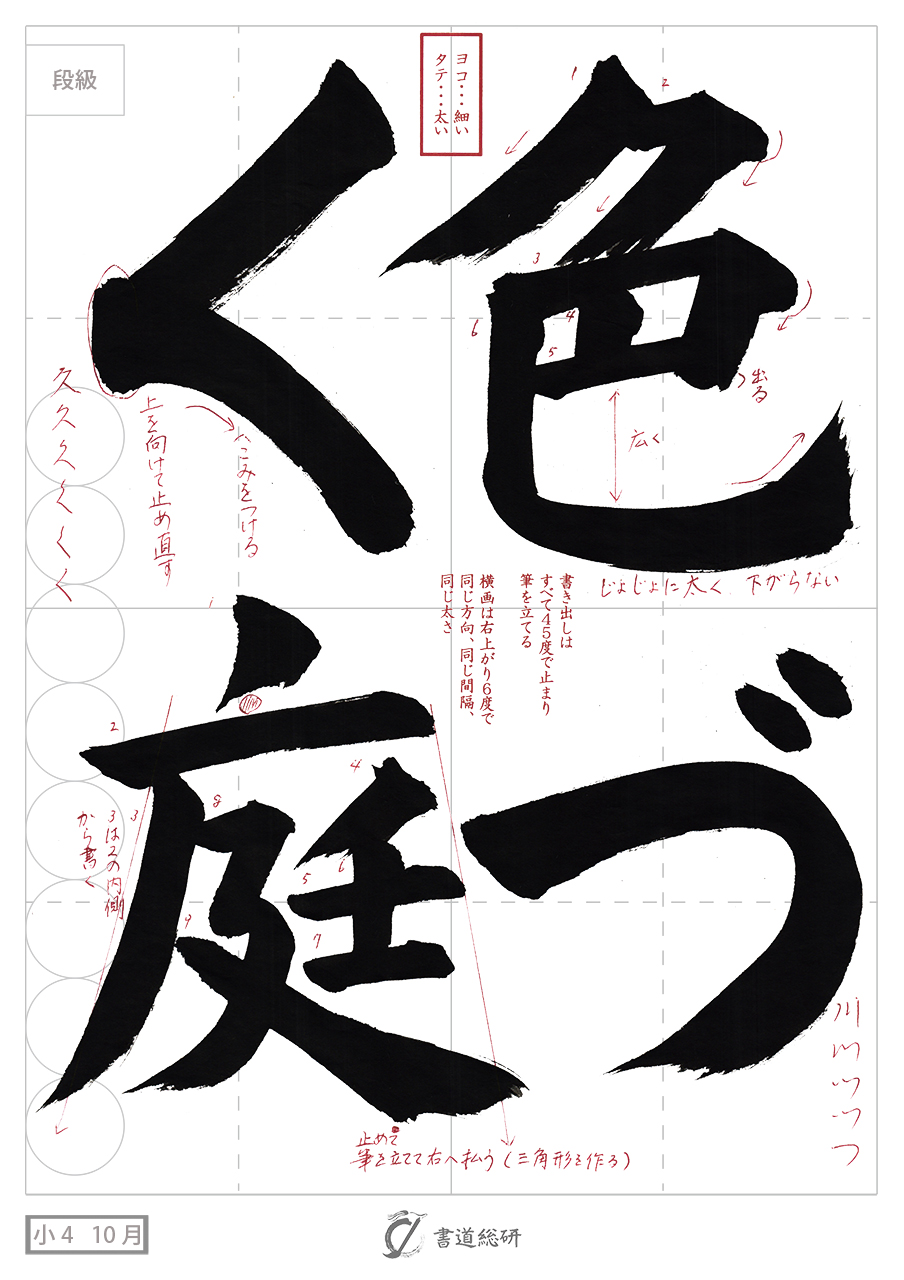 段級
ヨコ・・・細い
タテ・・・太い
色づ
く庭
1
2
3
4
5
6
出る
広く
じょじょに太く 下がらない
上を向けて止め直す
たこみをつける
久
久
く
く
く
く
書き出しは
すべて45度で止まり
筆を立てる
横画は右上がり6度で
同じ方向、同じ間隔、
同じ太さ
1
2
3
4
5
6
7
8
9
3は2の内側
から書く
川
つ
止めて
筆を立てて右へ払う(三角形を作る)
小4 10月
書道総研